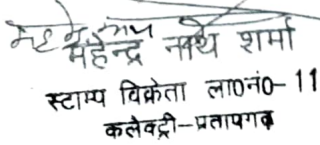 महेन्द्र नाथ शर्मा
स्टाम्प विक्रेता ला०नं०- 11
कलेक्ट्री-प्रतापगढ